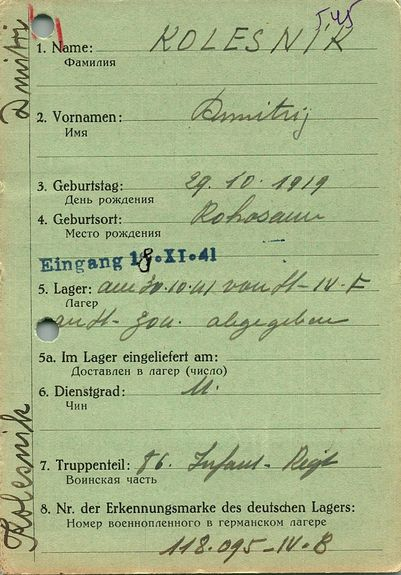 5.45
1. Name: KOLESNIK
Фамилия
2. Vornamen: Dmitrij
Имя
3. Geburtstag: 29.10.1919
День рождения
4. Geburtsort:
Место рождения
Eingang 18.XI.41
5. Lager: am 30.10.41 von St-IV-F
Лагер
an St- abgegeben
5a. Im Lager eingeliefert am:
Доставлен в лагер (число)
6. Dienstgrad:
Чин
7. Truppenteil: 86. Infant- Regt
Воинская часть
8. Nr. der Erkennungsmarke des deutschen Lagers:
Номер военнопленного в германском лагере
118.095-IV-B
Kolesnik Dmitrij